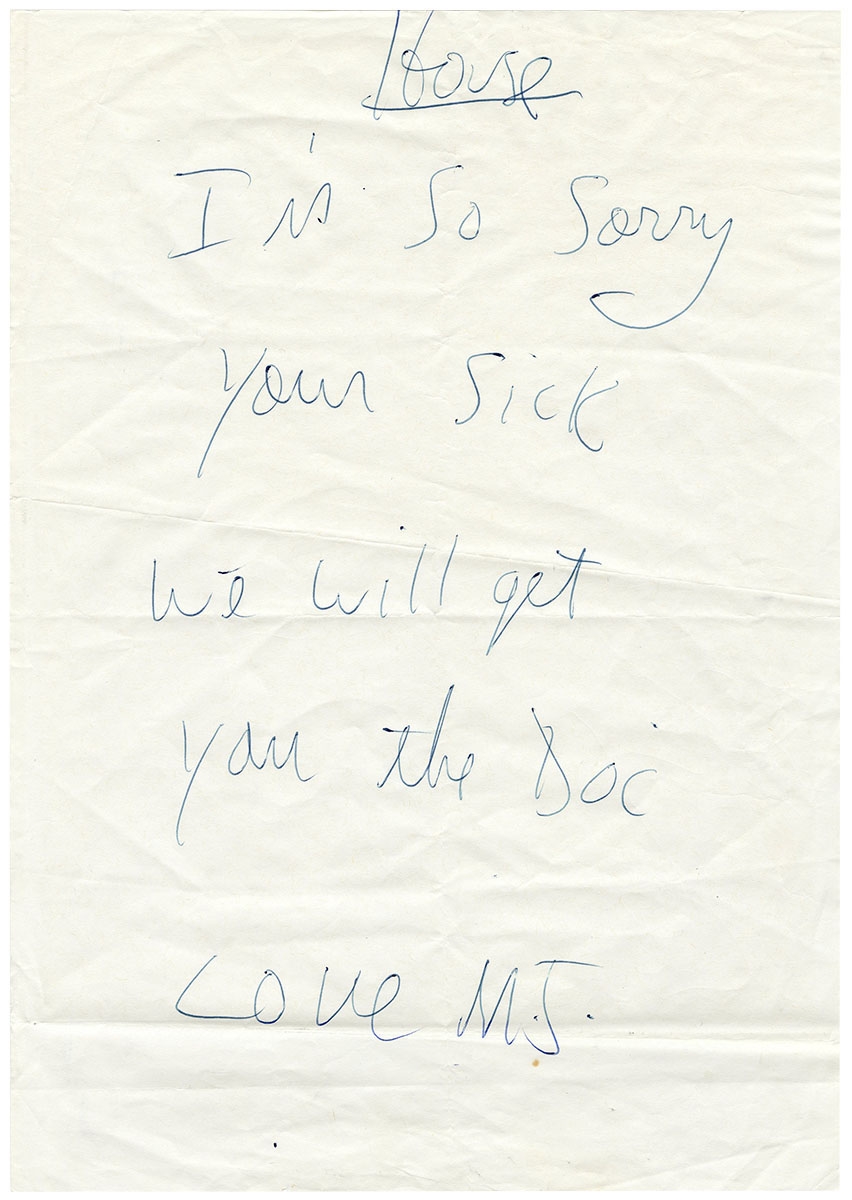 House
I is so sorry
your sick
we will get
you the Doc
Love M.J.